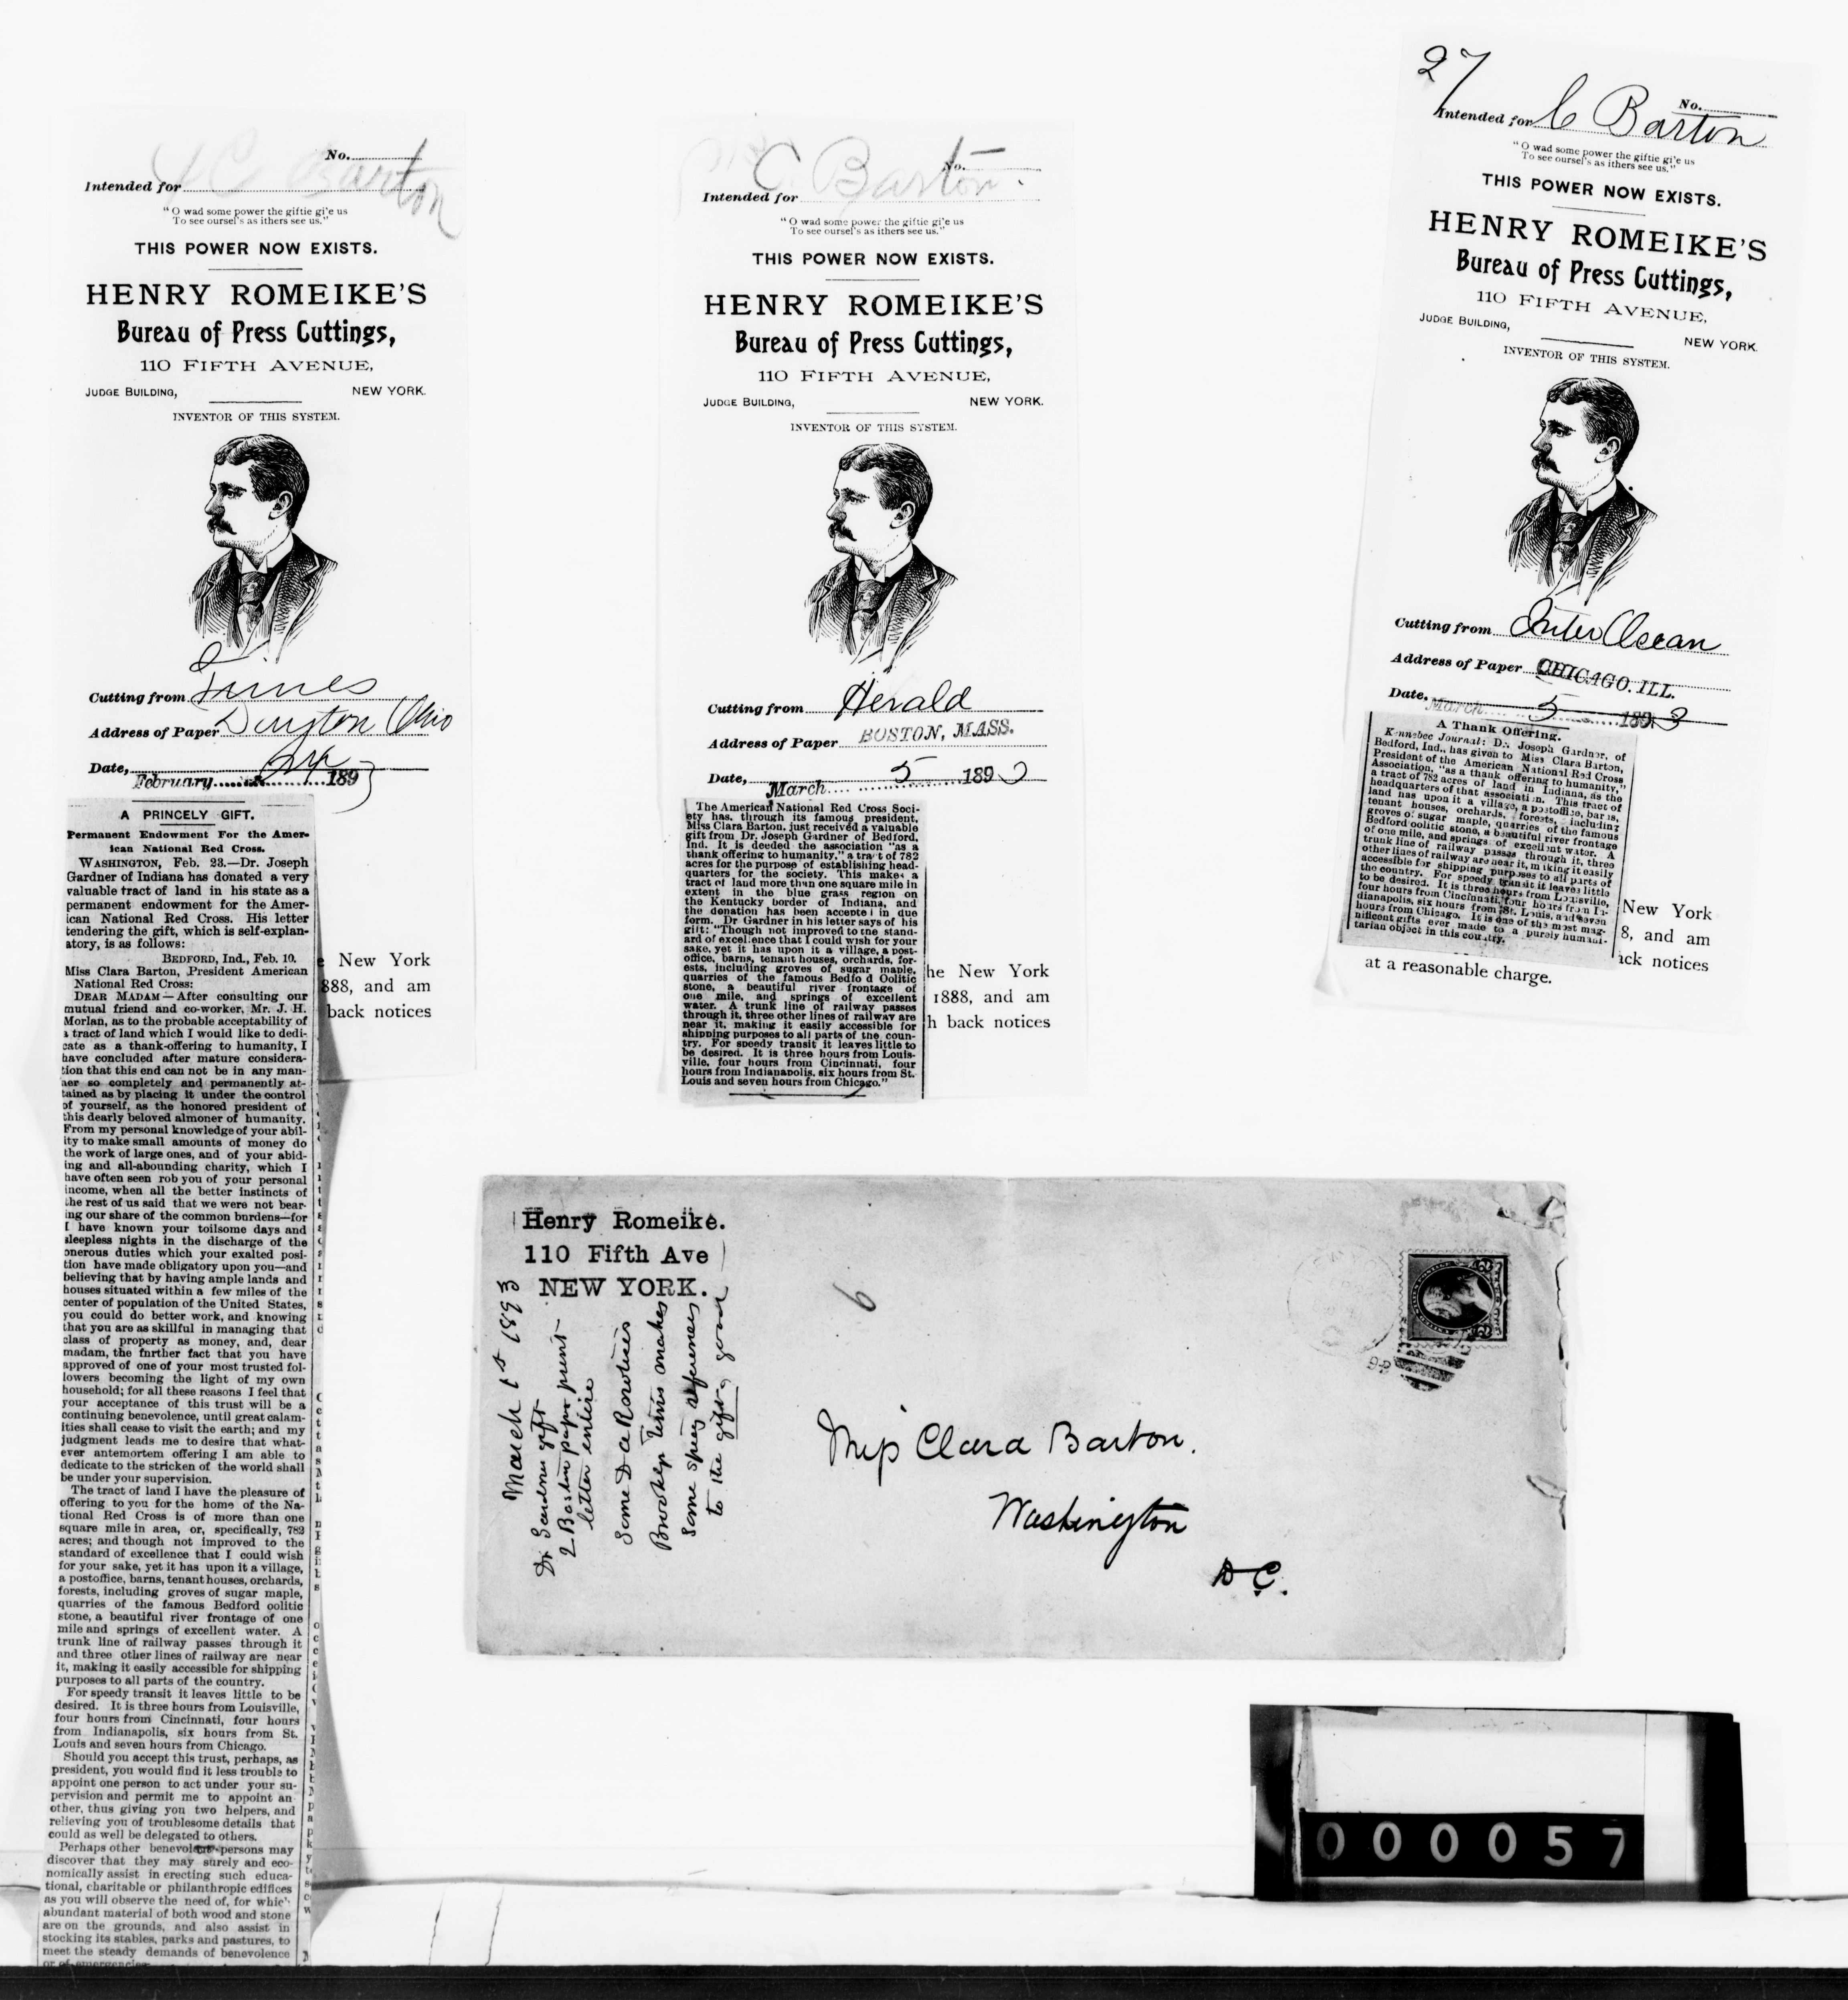 No.
Intended for C Barton
"O wad some power the giftie gi'e us
To see oursel's as ithers see us."
THIS POWER NOW EXISTS.
HENRY ROMEIKE'S
Bureau of Press Cuttings,
110 FIFTH AVENUE,
JUDGE BUILDING, NEW YORK.
INVENTOR OF THIS SYSTEM.
Cutting from Times
Address of Paper Dayton Ohio
Date, February 24 1893
A PRINCELY GIFT.
Permanent Endowment For the Amer-
ican National Red Cross.
WASHINGTON, Feb. 23.—Dr. Joseph
Gardner of Indiana has donated a very
valuable tract of land in his state as a
permanent endowment for the Amer-
ican National Red Cross. His letter
tendering the gift, which is self-explan-
atory, is as follows:
BEDFORD, Ind., Feb. 10.
Miss Clara Barton, President American
National Red Cross:
DEAR MADAM—After consulting our
mutual friend and co-worker, Mr. J. H.
Morlan, as to the probable acceptability of
a tract of land which I would like to dedi-
cate as a thank-offering to humanity, I
have concluded after mature considera-
tion that this end can not be in any man-
ner so completely and permanently at-
tained as by placing it under the control
of yourself, as the honored president of
this dearly beloved almoner of humanity.
From my personal knowledge of your abil-
ity to make small amounts of money do
the work of large ones, and of your abid-
ing and all-abounding charity, which I
have often seen rob you of your personal
income, when all the better instincts of
the rest of us said that we were not bear-
ing our share of the common burdens—for
I have known your toilsome days and
sleepless nights in the discharge of the
onerous duties which your exalted posi-
tion have made obligatory upon you—and
believing that by having ample lands and
houses situated within a few miles of the
center of population of the United States,
you could do better work, and knowing
that you are as skillful in managing that
class of property as money, and, dear
madam, the further fact that you have
approved of one of your most trusted fol-
lowers becoming the light of my own
household; for all these reasons I feel that
your acceptance of this trust will be a
continuing benevolence, until great calam-
ities shall cease to visit the earth; and my
judgment leads me to desire that what-
ever antemortem offering I am able to
dedicate to the stricken of the world shall
be under your supervision.
The tract of land I have the pleasure of
offering to you for the home of the Na-
tional Red Cross is of more than one
square mile in area, or, specifically, 782
acres; and though not improved to the
standard of excellence that I could wish
for your sake, yet it has upon it a village,
a postoffice, barns, tenant houses, orchards,
forests, including groves of sugar maple,
quarries of the famous Bedford oolitic
stone, a beautiful river frontage of one
mile and springs of excellent water. A
trunk line of railway passes through it
and three other lines of railway are near
it, making it easily accessible for shipping
purposes to all parts of the country.
For speedy transit it leaves little to be
desired. It is three hours from Louisville,
four hours from Cincinnati, four hours
from Indianapolis, six hours from St.
Louis and seven hours from Chicago.
Should you accept this trust, perhaps, as
president, you would find it less trouble to
appoint one person to act under your su-
pervision and permit me to appoint an
other, thus giving you two helpers, and
relieving you of troublesome details that
could as well be delegated to others.
Perhaps other benevolent persons may
discover that they may surely and eco-
nomically assist in erecting such educa-
tional, charitable or philanthropic edifices
as you will observe the need of, for which
abundant material of both wood and stone
are on the grounds, and also assist in
stocking its stables, parks and pastures, to
meet the steady demands of benevolence
or of emergencies
New York
888, and am
back notices
No.
Intended for C. Barton.
"O wad some power the giftie gi'e us
To see oursel's as ithers see us."
THIS POWER NOW EXISTS.
HENRY ROMEIKE'S
Bureau of Press Cuttings,
110 FIFTH AVENUE,
JUDGE BUILDING, NEW YORK.
INVENTOR OF THIS SYSTEM.
Cutting from Herald
Address of Paper BOSTON, MASS.
Date, March 5 1893
The American National Red Cross Soci-
ety has, through its famous president,
Miss Clara Barton, just received a valuable
gift from Dr. Joseph Gardner of Bedford,
Ind. It is deeded the association "as a
thank offering to humanity," a tract of 782
acres for the purpose of establishing head-
quarters for the society. This makes a
tract of land more than one square mile in
extent in the blue grass region on
the Kentucky border of Indiana, and
the donation has been accepted in due
form. Dr Gardner in his letter says of his
gift: "Though not improved to the stand-
ard of excellence that I could wish for your
sake, yet it has upon it a village, a post-
office, barns, tenant houses, orchards, for-
ests, including groves of sugar maple,
quarries of the famous Bedfo d Oolitic
stone, a beautiful river frontage of
one mile, and springs of excellent
water. A trunk line of railway passes
through it, three other lines of railway are
near it, making it easily accessible for
shipping purposes to all parts of the coun-
try. For speedy transit it leaves little to
be desired. It is three hours from Louis-
ville, four hours from Cincinnati, four
hours from Indianapolis, six hours from St.
Louis and seven hours from Chicago."
he New York
1888, and am
h back notices
27
No.
Intended for C Barton
"O wad some power the giftie gi'e us
To see oursel's as ithers see us."
THIS POWER NOW EXISTS.
HENRY ROMEIKE'S
Bureau of Press Cuttings,
110 FIFTH AVENUE,
JUDGE BUILDING, NEW YORK.
INVENTOR OF THIS SYSTEM.
Cutting from Inter Ocean
Address of Paper CHICAGO. ILL.
Date. March 5 1893
A Thank Offering.
Kennebec Journal: Dr. Joseph Gardner, of
Bedford, Ind., has given to Miss Clara Barton,
President of the American National Red Cross
Association, "as a thank offering to humanity,"
a tract of 782 acres of land in Indiana, as the
headquarters of that association. This tract of
land has upon it a village, a postoffice, barns,
tenant houses, orchards, forests, including
groves of sugar maple, quarries of the famous
Bedford oolitic stone, a beautiful river frontage
of one mile, and springs of excellent water. A
trunk line of railway passes through it, three
other lines of railway are near it, making it easily
accessible for shipping purposes to all parts of
the country. For speedy transit it leaves little
to be desired. It is three hours from Louisville,
four hours from Cincinnati, four hours from In-
dianapolis, six hours from St. Louis, and seven
hours from Chicago. It is one of the most mag-
nificent gifts ever made to a purely humani-
tarian object in this country.
New York
8, and am
ack notices
at a reasonable charge.
Henry Romeike.
110 Fifth Ave
NEW YORK.
March 1st 1893
Dr Gardners gift
2 Boston papers print
letter entire
Some D.A.R. notices
Brooklyn Times makes
some spicy references
to the gift, good
6
Miss Clara Barton.
Washington
D.C.
000057